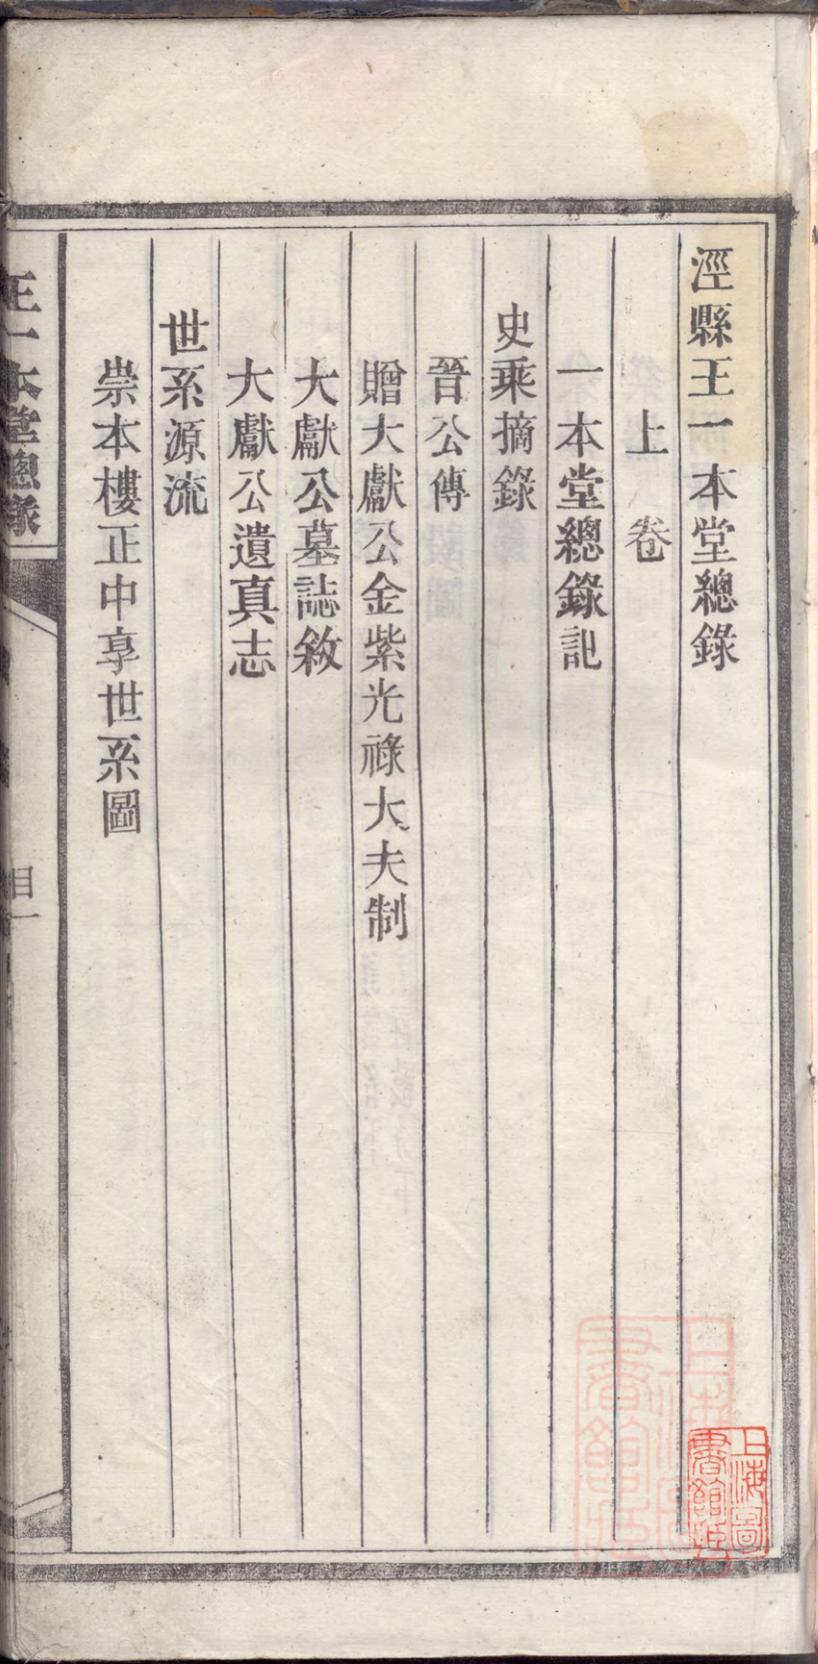 涇縣王一本堂總錄
上卷
一本堂總錄記
史乘摘錄
晉公傳
贈大獻公金紫光祿大夫制
大獻公墓誌敘
大獻公遺真志
世系源流
崇本樓正中享世系圖
王一本堂總錄
目一
上海圖書館藏